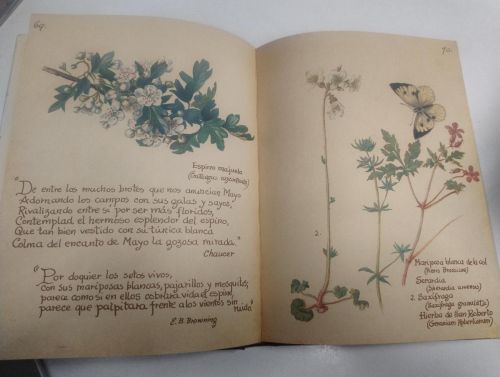 69.
Espino majuelo
(Crataegus oxyacantha)
"De entre los muchos brotes que nos anuncian Mayo
Adornando los campos con sus galas y sayos,
Rivalizando entre sí por ser más floridos,
Contemplad el hermoso esplendor del espino,
Que tan bien vestido con su túnica blanca
Colma del encanto de Mayo la gozosa mirada."
Chaucer
"Por doquier los setos vivos,
Con sus mariposas blancas, pajarillos y mosquitos;
parece como si en ellos cobrara vida el espino,
parece que palpitara frente a los vientos sin
ruido."
E. B. Browning
70.
2.
Mariposa blanca de la col
(Pieris Brassicae)
Serardia
(Sherardia arvensis)
2. Saxífraga
(Saxifraga granulata)
Hierba de San Roberto
(Geranium Robertianum)